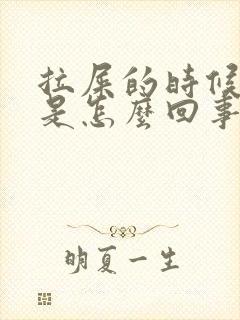 拉屎的時候
是怎麼回事
明夏一生